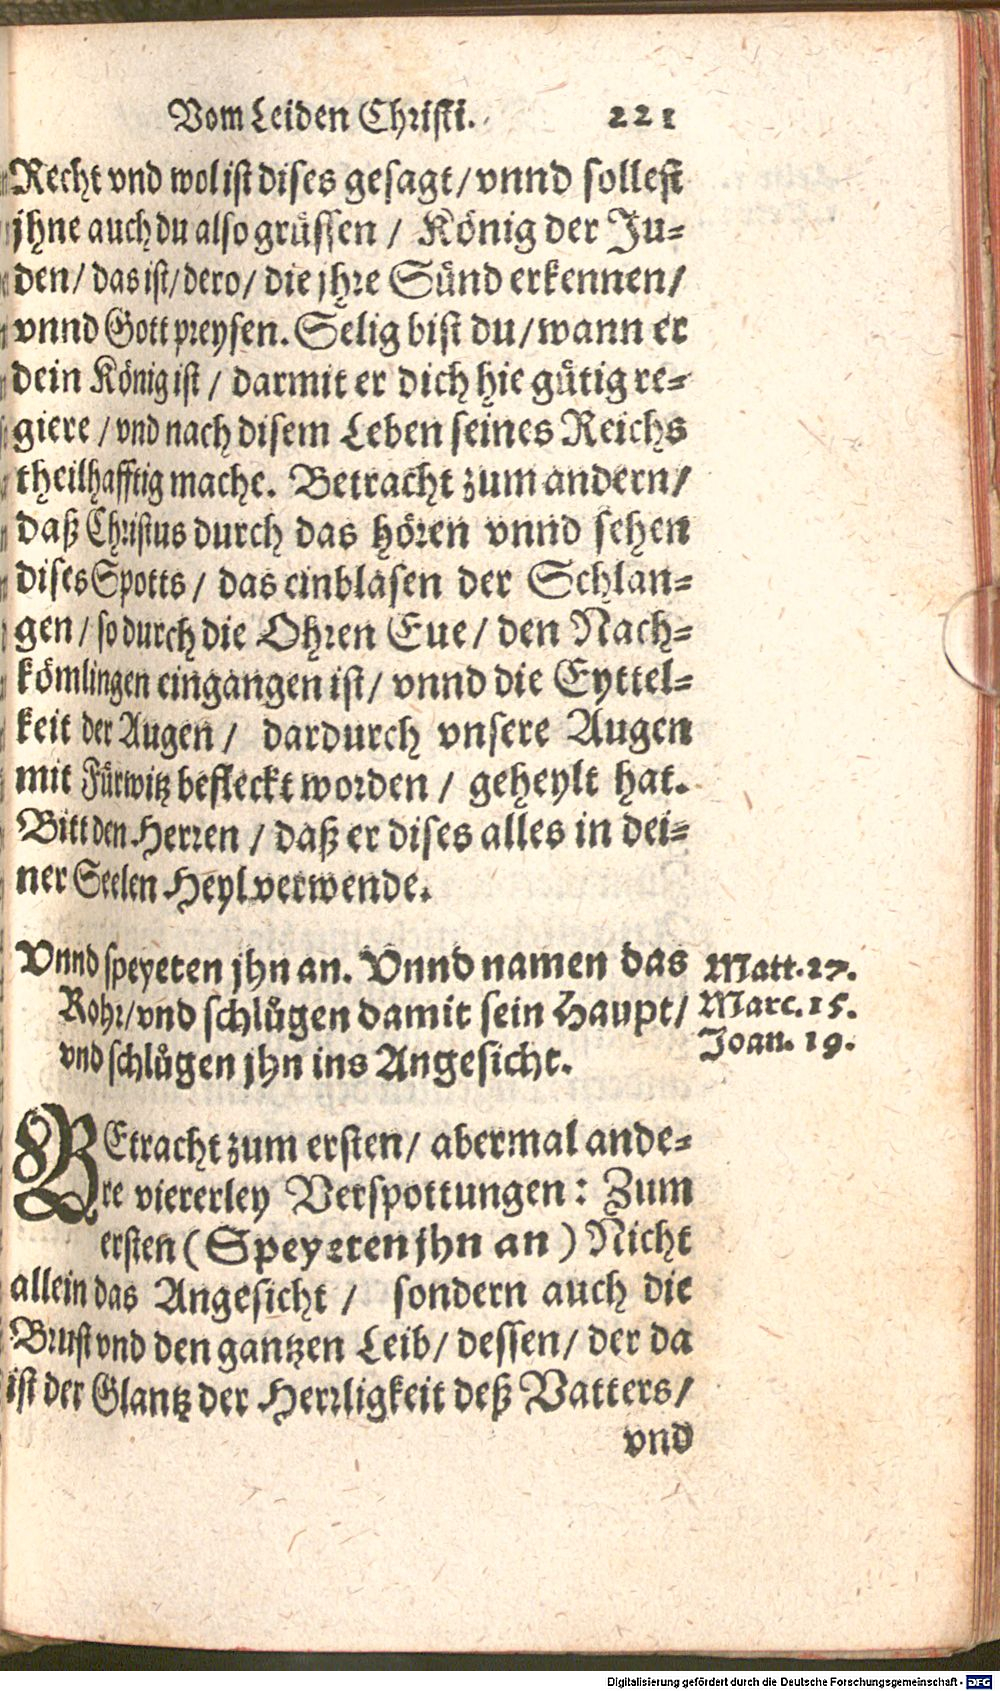 Vom Leiden Christi. 221
Recht vnd wol ist dises gesagt/ vnnd sollest
jhne auch du also grüssen / König der Ju-
den/ das ist/ dero/ die jhre Sünd erkennen/
vnnd Gott preysen. Selig bist du/ wann er
dein König ist / darmit er dich hie gütig re-
giere / vnd nach disem Leben seines Reichs
theilhafftig mache. Betracht zum andern/
daß Christus durch das hören vnnd sehen
dises Spotts / das einblasen der Schlan-
gen / so durch die Ohren Eue / den Nach-
kömlingen eingangen ist/ vnnd die Eyttel-
keit der Augen / dardurch vnsere Augen
mit Fürwitz befleckt worden / geheylt hat.
Bitt den Herren / daß er dises alles in dei-
ner Seelen Heyl verwende.
Vnnd speyeten jhn an. Vnnd namen das
Rohr/ vnd schlůgen damit sein Haupt/
vnd schlůgen jhn ins Angesicht.
Matt. 27.
Marc. 15.
Joan. 19.
BEtracht zum ersten/ abermal ande-
re viererley Verspottungen: Zum
ersten ( Speyeten jhn an ) Nicht
allein das Angesicht / sondern auch die
Brust vnd den gantzen Leib/ dessen/ der da
ist der Glantz der Herrligkeit deß Vatters/
vnd
Digitalisierung gefördert durch die Deutsche Forschungsgemeinschaft - DFG